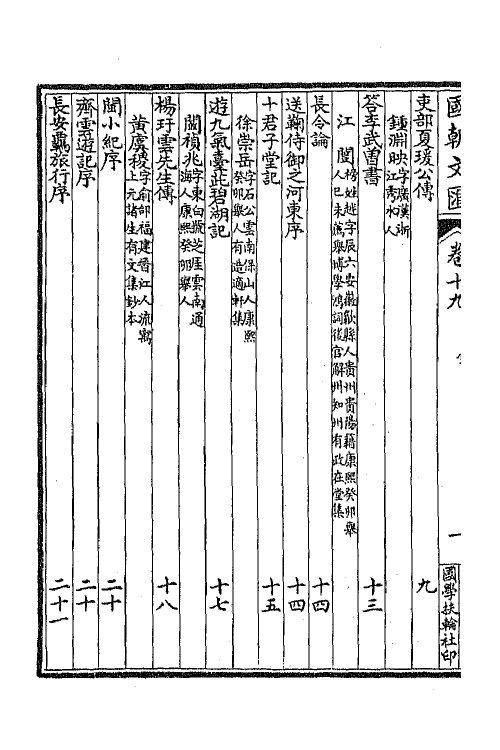 國朝文匯 卷十九 一 國學扶輪社印
吏部夏瑗公傳 九
鍾淵映 字廣漢浙江秀水人
答李武曾書 十三
江闓 榜姓越字辰六安徽歙縣人貴州貴陽籍康熙癸卯舉人己未薦舉博學鴻詞後官解州知州有政在堂集
長令論 十四
送鞠侍御之河東序 十四
十君子堂記 十五
徐崇岳 字石公雲南保山人康熙癸卯舉人有造適軒集
遊九氣臺茈碧湖記 十七
闞禎兆 字東白號芝厓雲南通海人康熙癸卯舉人
楊玗雲先生傳 十八
黃虞稷 字俞邰福建晉江人流寓上元諸生有文集鈔本
閩小紀序 二十
齊雲遊記序 二十
長安羈旅行序 二十一